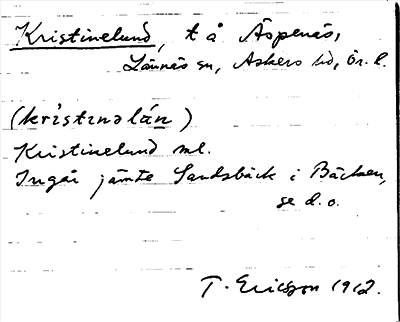 Kristinelund, t å Äspenäs,
Lännäs sn, Askers hd, Ör. l.
(krìstɪnəlún)
Kristinelund ml.
Ingår jämte Sandsbäck i Bäcken,
se d.o.
T. Ericsson 1912.